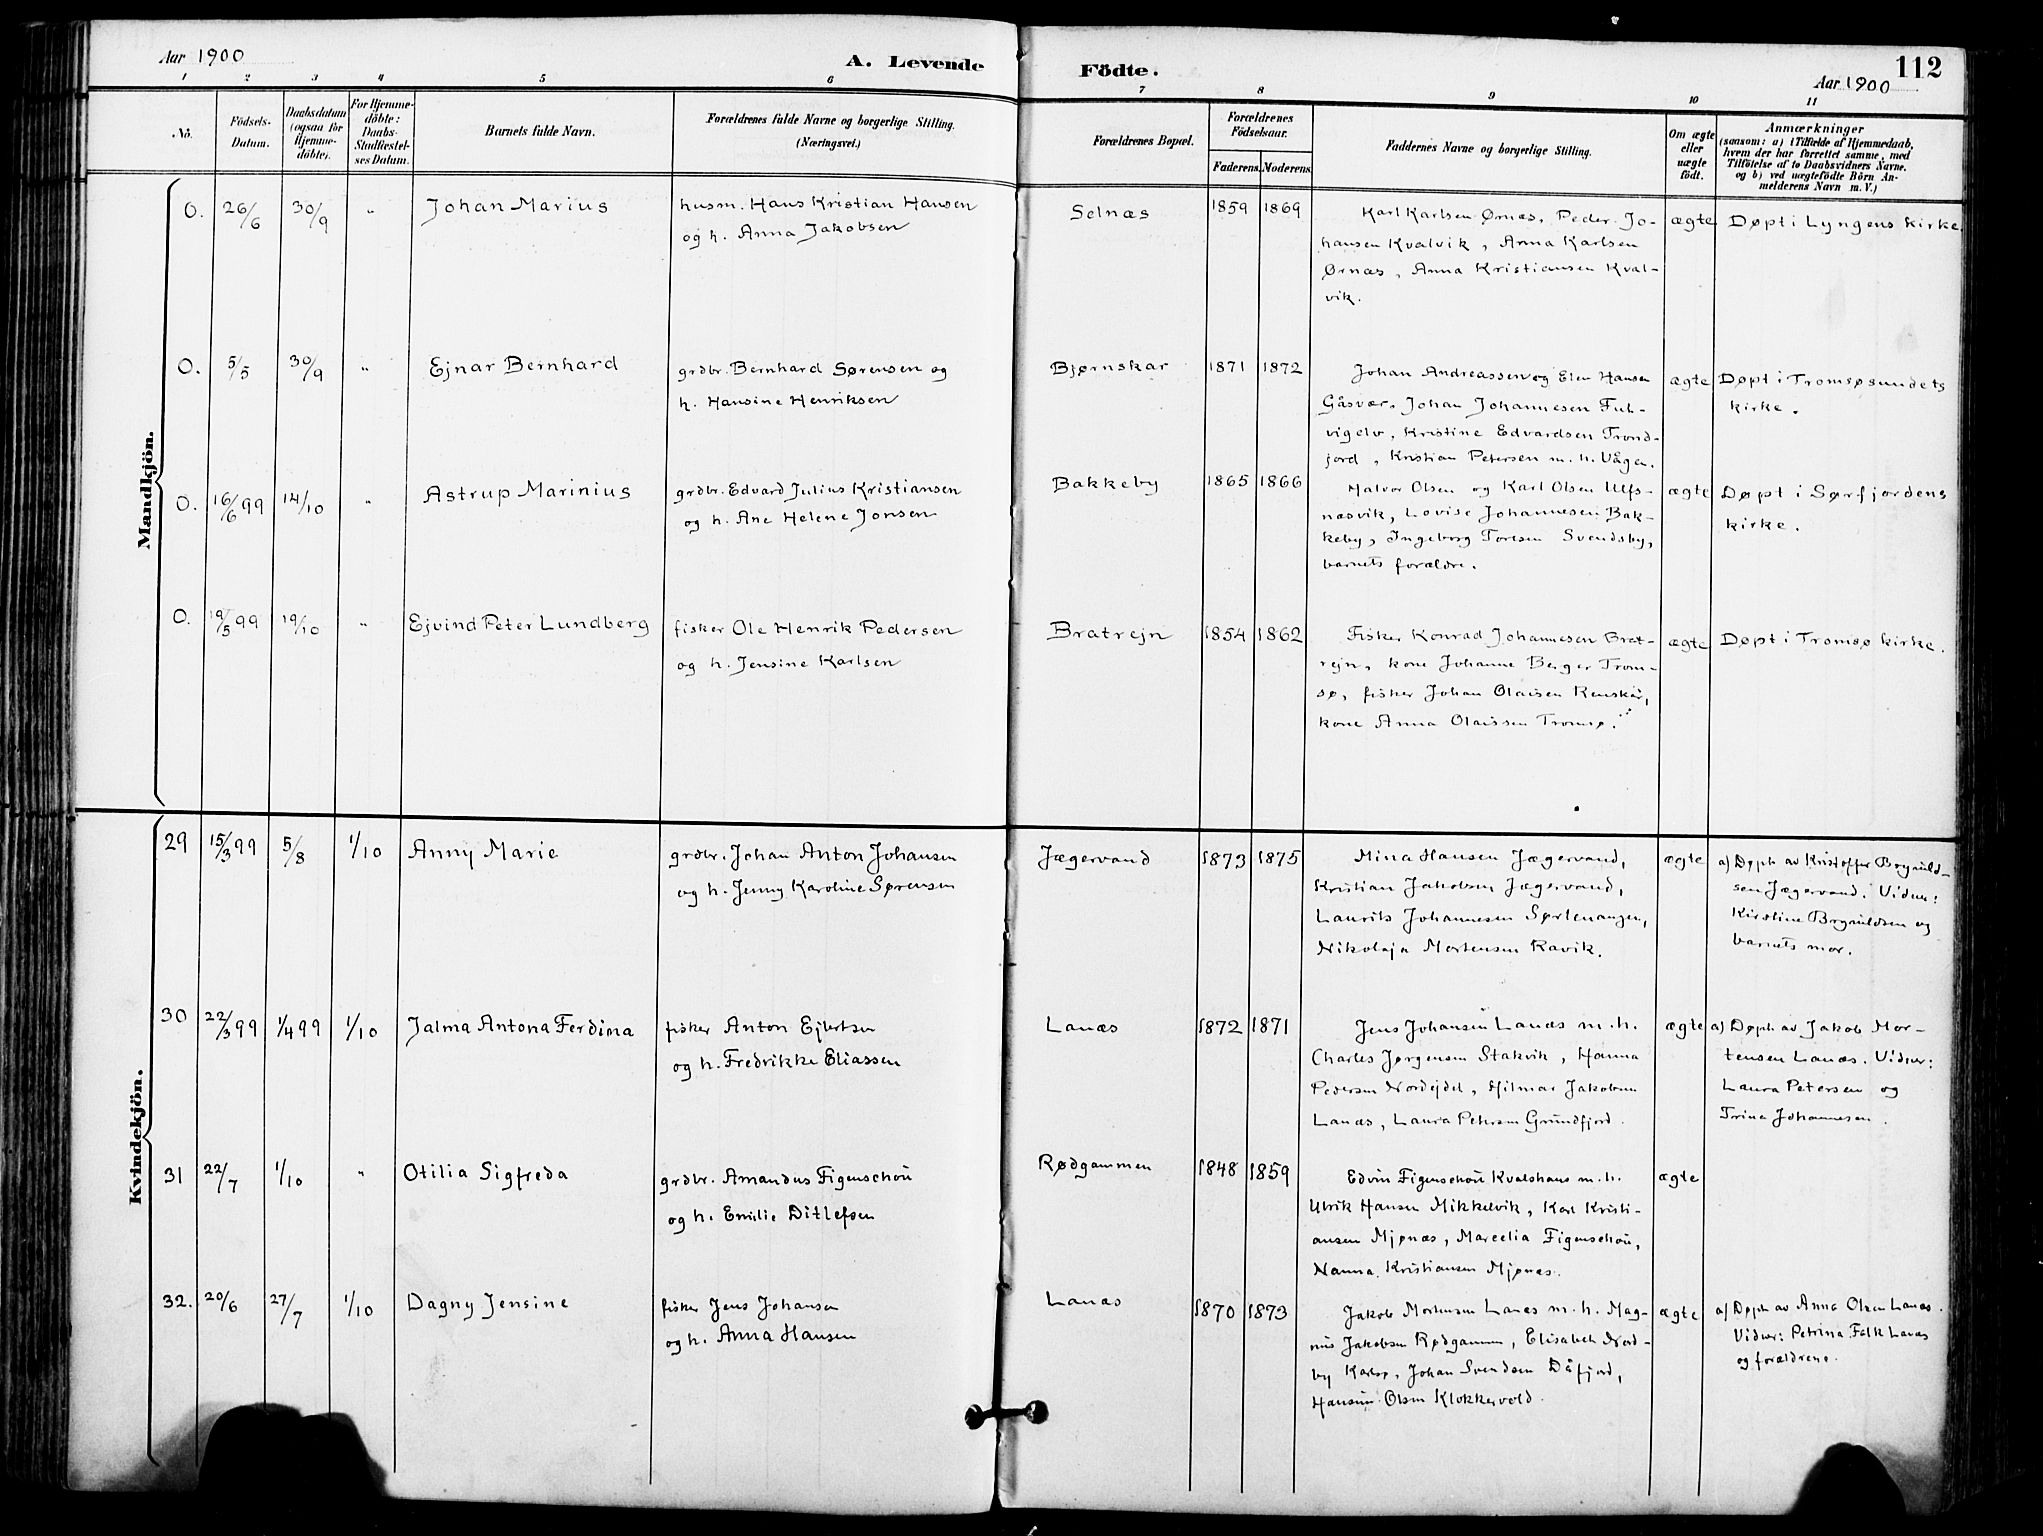 Aar 1900
A. Levende
Födte.
112
Aar 1900
1 2 3 4 5 6 7 8 9 10 11
No.
Födsels-
Datum.
Daabsdatum
(ogsaa for
Hjemme-
döbte).
For Hjemme-
döbte:
Daabs-
Stadfæstel-
ses Datum.
Barnets fulde Navn.
Forældrenes fulde Navne og borgerlige Stilling.
(Næringsvei.)
Forældrenes Bopæl.
Forældrenes
Födselsaar.
Faderens. Moderens.
Faddernes Navne og borgerlige Stilling.
Om ægte
eller
uægte
födt.
Anmærkninger
(saasom: a) i Tilfælde af Hjemmedaab,
hvem der har forrettet samme, med
Tilföielse af to Daabsvidners Navne,
og b) ved uægtefödte Börn An-
melderens Navn m. V.)
Mandkjön.
O. 26/6 30/9 " Johan Marius
husm. Hans Kristian Hansen
og h. Anna Jakobsen
Selnæs 1859 1869
Karl Karlsen Ørnæs, Peder Jo-
hansen Kvalvik, Anna Karlsen
Ørnæs, Anna Kristiansen Kval-
vik.
ægte Døpt i Lyngens kirke.
O. 5/5 30/9 " Ejnar Bernhard
grdbr. Bernhard Sørensen og
h. Hansine Henriksen
Bjørnskar 1871 1872
Johan Andreassen og Elen Hansen
Gåsvær, Johan Johannesen Fuh-
vigelv, Kristine Edvardsen Trond-
jord, Kristian Petersen m. h. Vågen.
ægte Døpt i Tromsøsundets
kirke.
O. 16/6 99 14/10 " Astrup Marinius
grdbr. Edvard Julius Kristiansen
og h. Ane Helene Jonsen
Bakkeby 1865 1866
Halvor Olsen og Karl Olsen Ulfs-
næsvik, Lovise Johannesen Bak-
keby, Ingeborg Toresen Svendsby,
barnets forældre.
ægte Døpt i Sørfjordens
kirke.
O. 19/5 99 19/10 " Ejvind Peter Lundberg
fisker Ole Henrik Pedersen
og h. Jensine Karlsen
Bratrejn 1854 1862
Fisker Konrad Johannesen Brat-
rejn, kone Johanne Berger Trom-
sø, fisker Johan Olaisen Renskär,
kone Anna Olaissen Tromsø.
ægte Døpt i Tromsø kirke.
Kvindekjön.
29 15/3 99 5/8 1/10 Anny Marie
grdbr. Johan Anton Johansen
og h. Jenny Karoline Sørensen
Jægervand 1873 1875
Mina Hansen Jægervand,
Kristian Jakobsen Jægervand,
Laurits Johannesen Sørlenangen,
Nikolaja Mortensen Ravik.
ægte a) Døpt av Kristoffer Brynild-
sen Jægervand. Vidner:
Kirstine Brynildsen og
barnets mor.
30 22/3 99 1/4 99 1/10 Jalma Antona Ferdina
fisker Anton Ejlertsen
og h. Fredrikke Eliassen
Lanæs 1872 1871
Jens Johansen Lanæs m. h.
Charles Jørgensen Stakvik, Hanna
Pedersen Nordejdet, Hilmar Jakobsen
Lanæs, Laura Petersen Grundfjord.
ægte a) Døpt av Jakob Mor-
tensen Lanæs. Vidner:
Laura Petersen og
Trina Johannesen.
31 22/7 1/10 " Otilia Sigfreda
grdbr. Amandus Figenschou
og h. Emilie Ditlefsen
Rødgammen 1848 1859
Edvin Figenschou Kvalshaus m. h.
Ulrik Hansen Mikkelvik, Karl Kristi-
ansen Mjønæs, Marcelia Figenschou,
Nanna Kristiansen Mjønæs.
ægte
32. 20/6 27/7 1/10 Dagny Jensine
fisker Jens Johansen
og h. Anna Hansen
Lanæs 1870 1873
Jakob Mortensen Lanæs m. h. Mag-
nus Jakobsen Rødgammen, Elisabeth Nord-
by Karlsø, Johan Svendsen Dåfjord,
Hansine Olsen Klokkervold.
ægte a) Døpt av Anna Olsen Lanæs.
Vidner: Petrina Falk Lanæs
og forældrene.